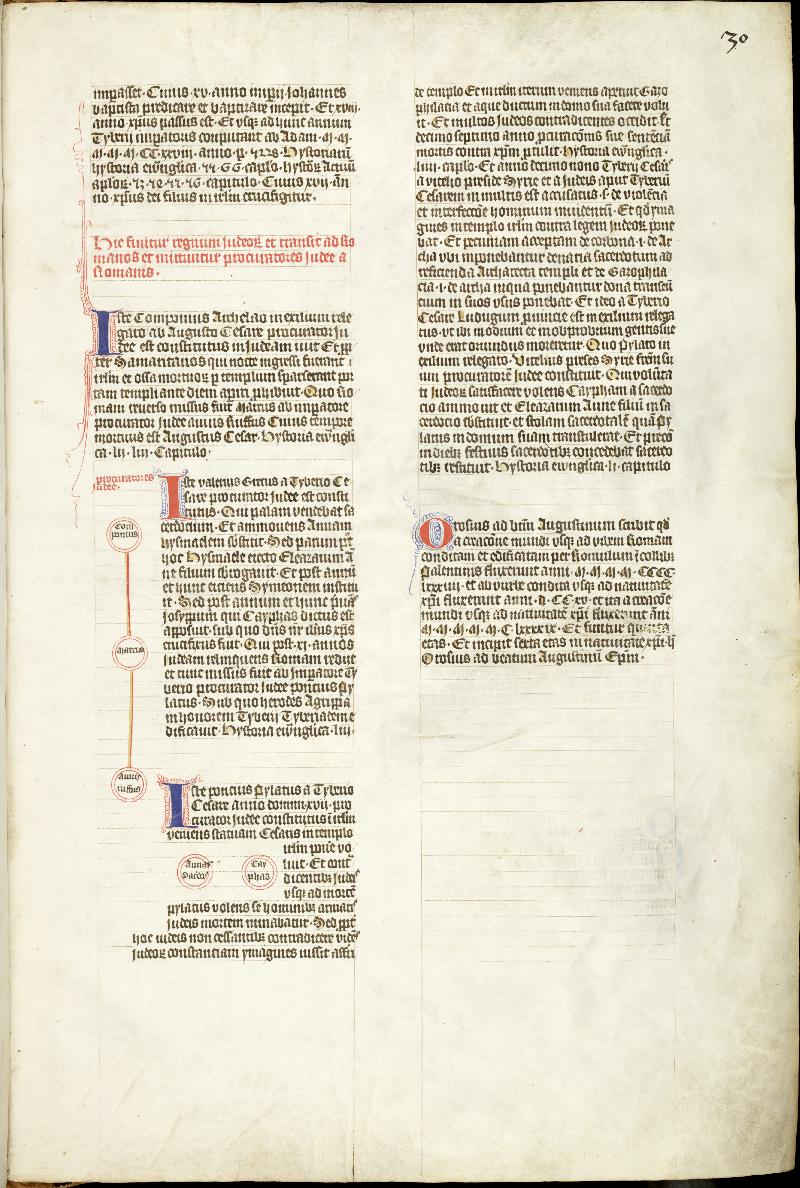 30
impasset · Cuius · xv · anno imperij Johannes
baptista predicare et baptizare incepit · Et xviij ·
anno xpus passus est · Et vsqz ad hunc annum
Tyberij imperatoris computant ab Adam · M · M ·
M · M · M · CC · xxviij · annis · Hystoriam
hystoria ewglica · capitulo · Cuius xvij · an
no xpus dei filius in irlm crucifigitur ·
Hic finitur regnum Judeorz et transit ad Ro
manos et mittuntur procuratores Judee a
Romanis ·
Iste Componius Archelao in exilium rele
gato ab Augusto Cesare procurator Ju
dee est constitutus in Judeam iuit Et ppter
Samaritanos qui nocte ingressi fuerant i
irlm et ossa mortuorz p templum sparserant por
tam templi ante diem apiri phibuit · Quo Ro
mam reuerso missus fuit Marcus ab impatore
procurator Judee annius ruffus Cuius tempore
mortuus est Augustus Cesar · Hystoria ewngli
ca · lij · liij · Capitulo ·
procuratores
Judee ·
Iste valerius Grecus a Tyberio Ce
sare procurator Judee est consti
tutus · Qui palam vendebat sa
cerdocium · Et ammouens Annam
hysmaelem sbstituit · Sed parum pt
hoc Hysmaele eiecto Eleazarum A
ne filium sbrogauit · Et post annum
et hunc eiciens Symeonem instituit
Sed post annum et hunc priuans
Josyppum qui Cayphas dictus est
apposuit · sub quo dns nr ihus xps
crucifixus fuit · Qui post · xi · annos
Judeam relinquens Romam redijt
et tunc missus fuit ab impatore Ty
berio procurator Judee poncius py
latus · Sub quo herodes Agrippa
in honorem Tyberij Tyberiadem e
dificauit · Hystoria ewnglica · liij ·
Com
ponius
Marcus
Annius
ruffus
Iste poncius Pylatus a Tyberio
Cesare anno domini · xvij · pro
curator Judee constitutus i irlm
veniens statuam Cesaris in templo
irlm pone vo
luit · Et cont
dicentibz iudeis
vsqz ad mortem
Annas
sacerdos
Cay
phas
pylatus volens se hominibz armatis
iudeis mortem minabatur · Sed ppt
hoc iudeis non cessantibz contradicere vides
iudeorz constanciam ymagines iussit affri
de templo Et in irlm iterum veniens aperuit Gazo
philacia et aque ductum in domo sua facere volu
it · Et multos Judeos contradicentes occidit Et
decimo septimo anno pcuracionis sue sentenciam
mortis contra xpm ptulit · Hystoria ewnglica ·
liij · caplo · Et anno decimo nono Tyberij Cesaris
a vitelio preside Syrie et a Judeis aput Tyberium
Cesarem in multis est accusatus · s · de violencia
et interfeccione hominum innocentum · Et qd yma
gines in templo irlm contra legem Judeorz pone
bat · Et pecuniam acceptam de corbona · i · de Ar
cha vbi imponebantur denaria sacerdotum ad
reficienda Architecta templi et de Gazophila
cia · i · de archa in qua ponebantur dona transeun
cium in suos vsus ponebat · Et ideo a Tyberio
Cesare Ludugium prouincie est in exilium relega
tus · vt ibi modum et in obprobrium gentis sue
vnde erat oriundus moreretur · Quo pylato in
exilium relegato · Vitelius preses Syrie frem su
um procuratorem Judee constituit · Qui volunta
ti Judeorz satisfacere volens Caypham a sacerdo
cio ammouit et Eleazarum Anne filium in sa
cerdocio sbstituit · et stolam sacerdotalem quam Py
latus in domum suam transtulerat · Et precium
in diebz festiuis sacerdotibz concedebat sacerdo
tibz restituit · Hystoria ewnglica · li · capitulo
Orosius ad btum Augustinum scribit qd
a creacione mundi vsqz ad vrbem Romam
conditam et edificatam per Romulum i collibz
palentinis fluxerunt anni · M · M · M · M · CCCC
lxxxiiij · et ab vrbe condita vsqz ad natiuitatem
xpi fluxerunt anni · D · CC · xv · et ita a creacione
mundi vsqz ad natiuitatem xpi fluxerunt anni
M · M · M · M · M · C · lxxxxix · Et finitur quinta
etas · Et incipit sexta etas in natiuitate xpi ·
Orosius ad beatum Augustinum Epm ·